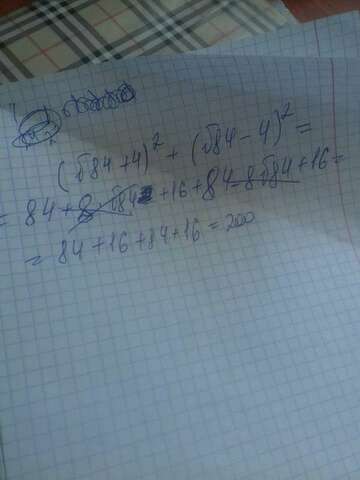 (√84 + 4)² + (√84 - 4)² =
= 84 + 8·√84 + 16 + 84 - 8√84 + 16 =
= 84 + 16 + 84 + 16 = 200